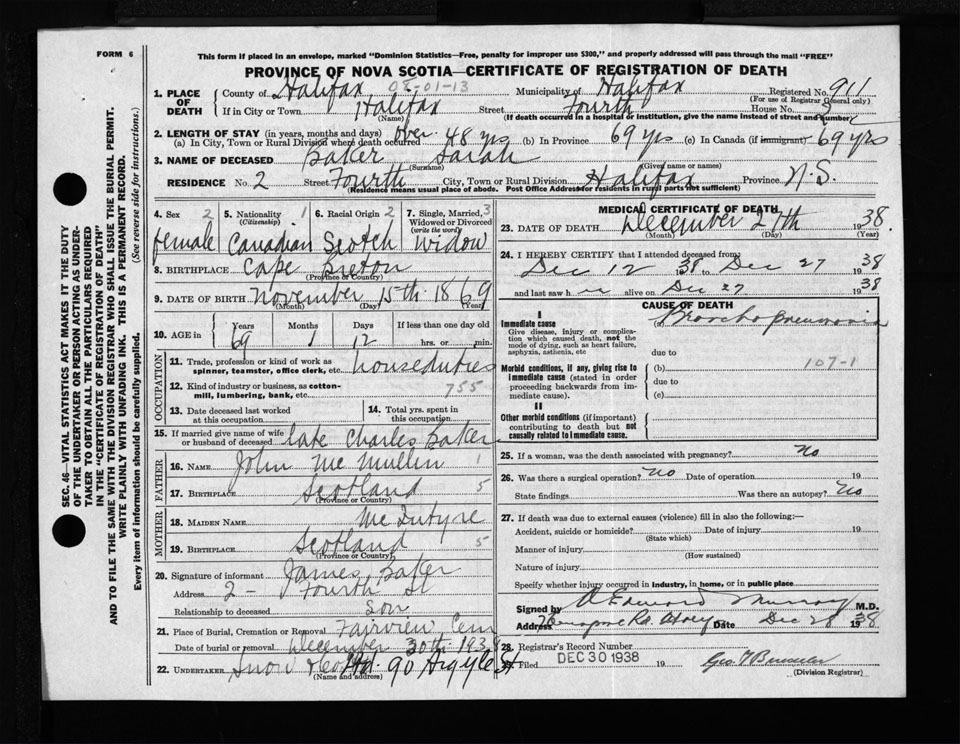 FORM 6
This form if placed in an envelope, marked "Dominion Statistics—Free, penalty for improper use $300," and properly addressed will pass through the mail "FREE"
PROVINCE OF NOVA SCOTIA—CERTIFICATE OF REGISTRATION OF DEATH
SEC. 46—VITAL STATISTICS ACT MAKES IT THE DUTY
OF THE UNDERTAKER OR PERSON ACTING AS UNDER-
TAKER TO OBTAIN ALL THE PARTICULARS REQUIRED
IN THE "CERTIFICATE OF REGISTRATION OF DEATH"
AND TO FILE THE SAME WITH THE DIVISION REGISTRAR WHO SHALL ISSUE THE BURIAL PERMIT.
WRITE PLAINLY WITH UNFADING INK. THIS IS A PERMANENT RECORD.
Every item of information should be carefully supplied. (See reverse side for instructions.)
08-01-13
1. PLACE OF DEATH County of Halifax Municipality of Halifax Registered No. 911
(For use of Registrar General only)
If in City or Town Halifax Street Fourth House No.
(Name) (If death occurred in a hospital or institution, give the name instead of street and number)
2. LENGTH OF STAY (in years, months and days)
(a) In City, Town or Rural Division where death occurred over 48 yrs (b) In Province 69 yrs (c) In Canada (if immigrant) 69 yrs
3. NAME OF DECEASED Baker Sarah
(Surname) (Given name or names)
RESIDENCE No. 2 Street Fourth City, Town or Rural Division Halifax Province N.S.
(Residence means usual place of abode. Post Office Address for residents in rural parts not sufficient)
4. Sex 2 5. Nationality 1 6. Racial Origin 2 7. Single, Married, 3
(Citizenship) Widowed or Divorced
(write the word)
female Canadian Scotch Widow
8. BIRTHPLACE Cape Breton
(Province or Country)
9. DATE OF BIRTH November 15th 1869
(Month) (Day) (Year)
10. AGE in Years Months Days If less than one day old
69 1 12 hrs. or min.
OCCUPATION
11. Trade, profession or kind of work as
spinner, teamster, office clerk, etc. houseduties
12. Kind of industry or business, as cotton-
mill, lumbering, bank, etc. 755
13. Date deceased last worked
at this occupation
14. Total yrs. spent in
this occupation
15. If married give name of wife
or husband of deceased late Charles Baker
FATHER
16. NAME John Mc Mullin 1
17. BIRTHPLACE Scotland 5
(Province or Country)
MOTHER
18. MAIDEN NAME Mc Intyre
19. BIRTHPLACE Scotland 5
(Province or Country)
20. Signature of informant James Baker
Address 2 - Fourth St
Relationship to deceased Son
21. Place of Burial, Cremation or Removal Fairview Cem
Date of burial or removal December 30th 1938
22. UNDERTAKER Snow & Co Ltd. 90 Argyle St
(Name and address)
MEDICAL CERTIFICATE OF DEATH
23. DATE OF DEATH December 27th 1938.
(Month) (Day) (Year)
24. I HEREBY CERTIFY that I attended deceased from:
Dec 12 1938 to Dec 27 1938
and last saw h er alive on Dec 27 1938
CAUSE OF DEATH
I
Immediate cause
Give disease, injury or complica-
tion which caused death, not the
mode of dying, such as heart failure,
asphyxia, asthenia, etc
(a) Broncho pneumonia
due to
Morbid conditions, if any, giving rise to
immediate cause (stated in order
proceeding backwards from im-
mediate cause).
(b) 107-1
due to
(c)
II
Other morbid conditions (if important)
contributing to death but not
causally related to immediate cause.
25. If a woman, was the death associated with pregnancy? No
26. Was there a surgical operation? No Date of operation 19
State findings Was there an autopsy? No
27. If death was due to external causes (violence) fill in also the following:—
Accident, suicide or homicide? Date of injury 19
(State which)
Manner of injury
(How sustained)
Nature of injury
Specify whether injury occurred in industry, in home, or in public place
Signed by A Edward Murray M.D.
Address Date Dec 28 1938
28. Registrar's Record Number
Filed DEC 30 1938 19
(Division Registrar)